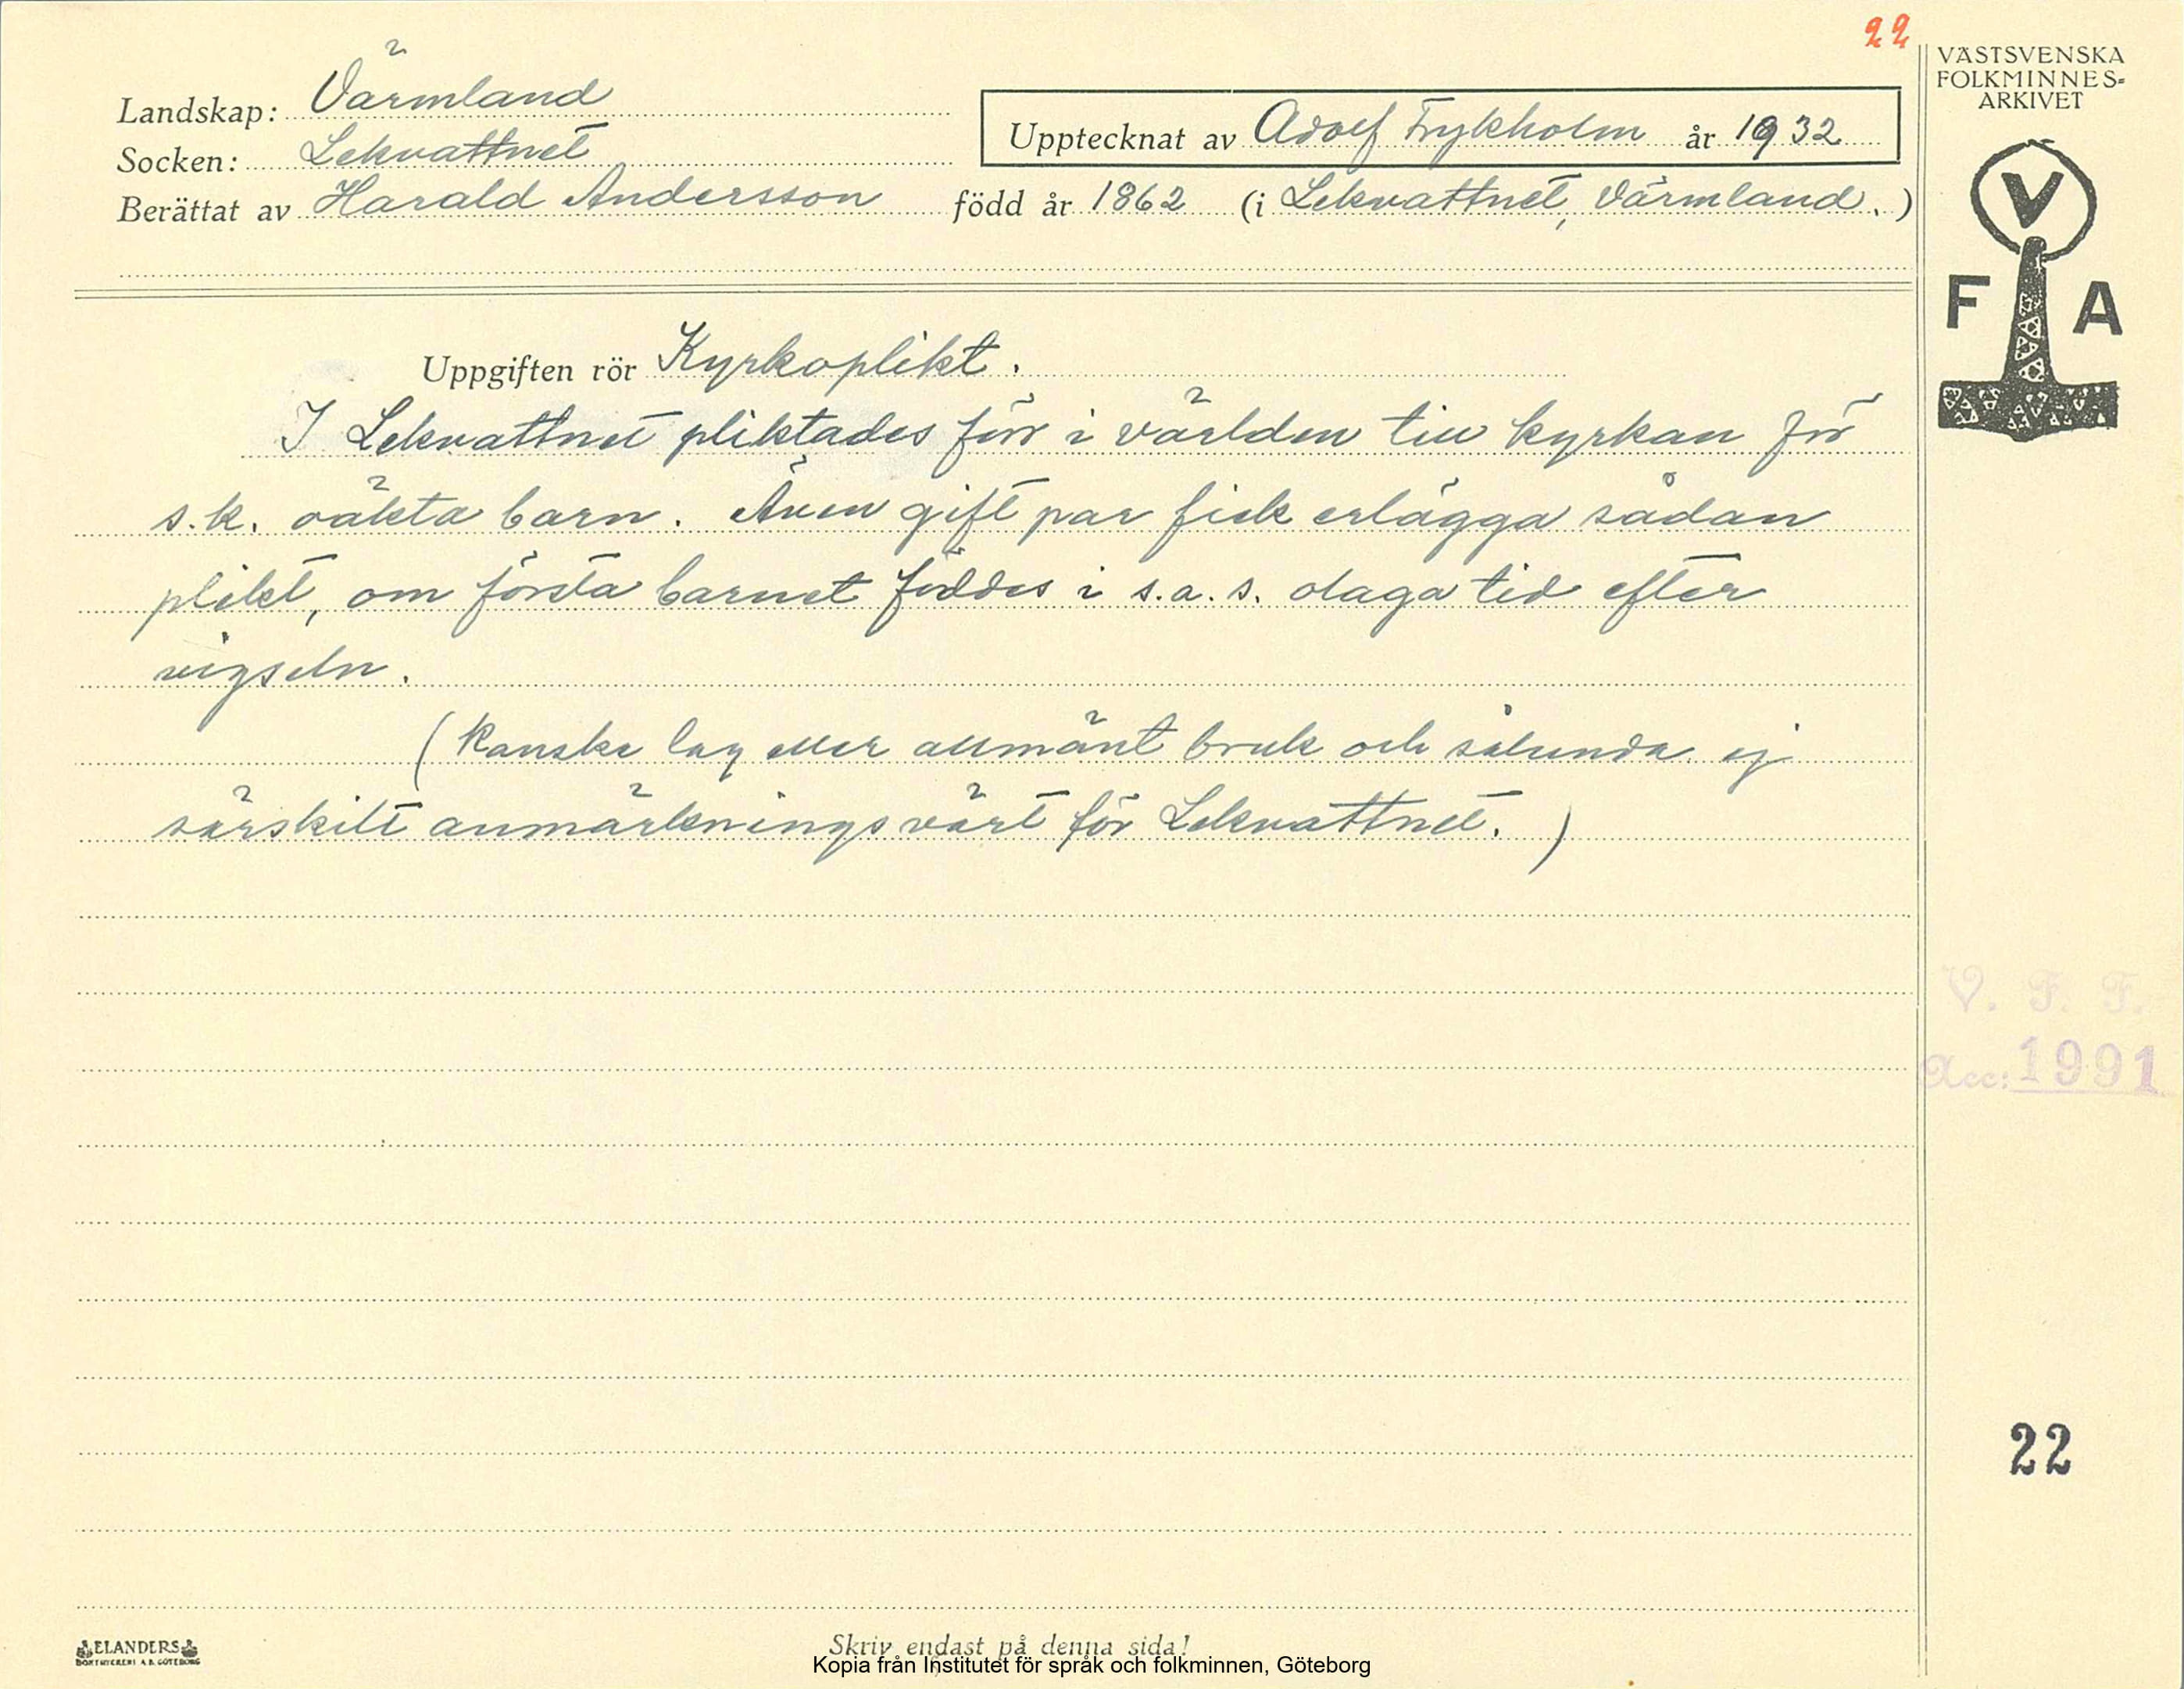 22
VÄSTSVENSKA
FOLKMINNES-
ARKIVET
Landskap: Värmland
Socken: Lekvattnet
Upptecknat av Adolf Frykholm år 1932
Berättat av Harald Andersson född år 1862 (i Lekvattnet, Värmland.)
V
F A
Uppgiften rör Kyrkoplikt.
I Lekvattnet pliktades förr i världen till kyrkan för
s.k. oäkta barn. Även gift par fick erlägga sådan
plikt, om första barnet föddes i s.a.s. olaga tid efter
vigseln.
(Kanske lag eller allmänt bruk och sålunda ej
särskilt anmärkningsvärt för Lekvattnet.)
V. F. F.
Acc: 1991
22
ELANDERS
BOKTRYCKERI A.B. GÖTEBORG
Skriv endast på denna sida!
Kopia från Institutet för språk och folkminnen, Göteborg